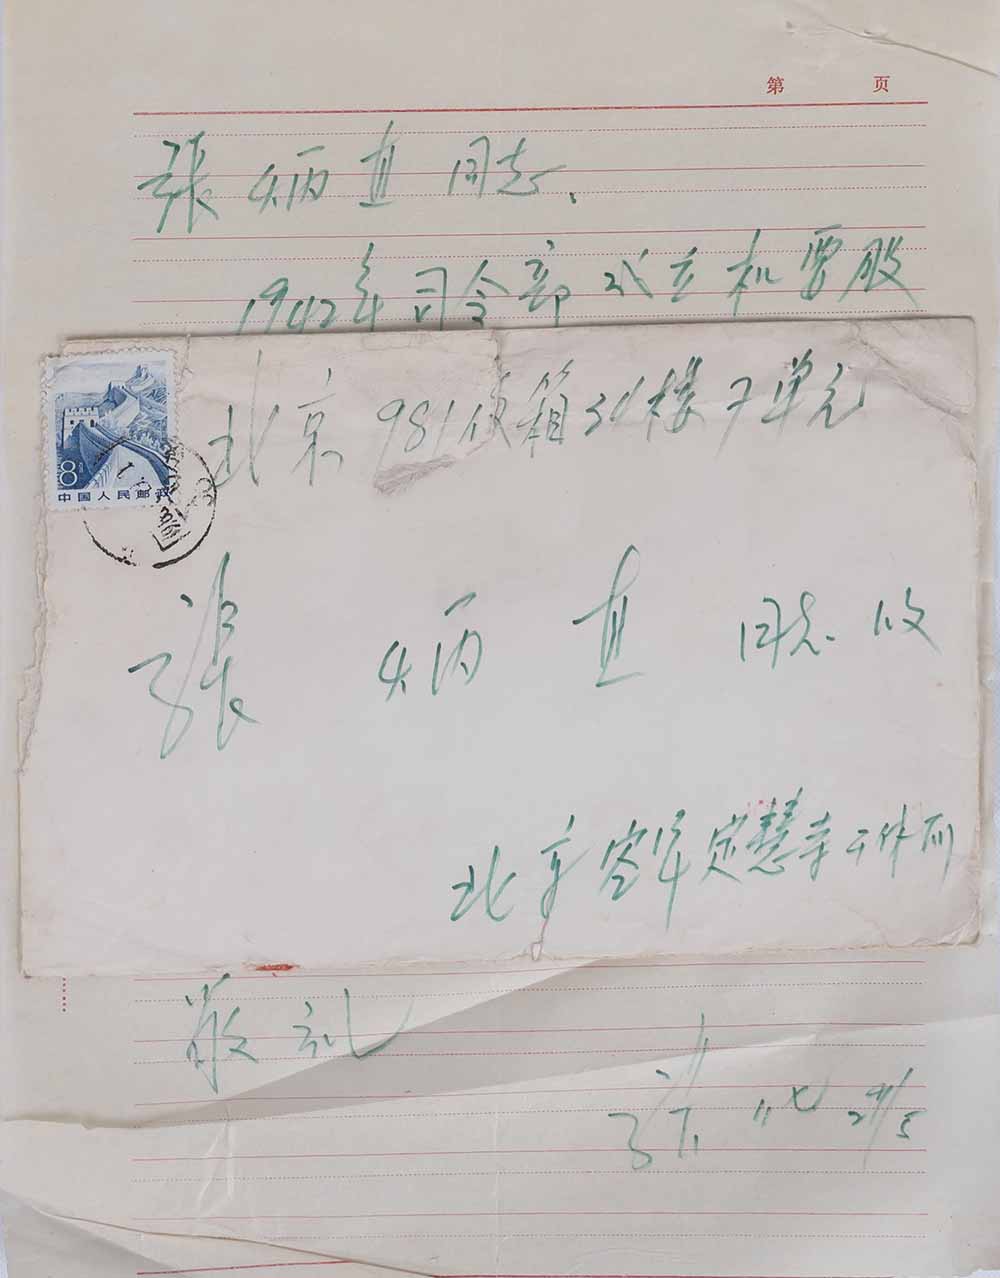 第 页
張炳直同志、
1942年司令部成立机要股
8
中国人民邮政
北京981信箱31楼7单元
張 炳 直 同志 收
北京空军定慧寺干休所
敬礼
張 29/5